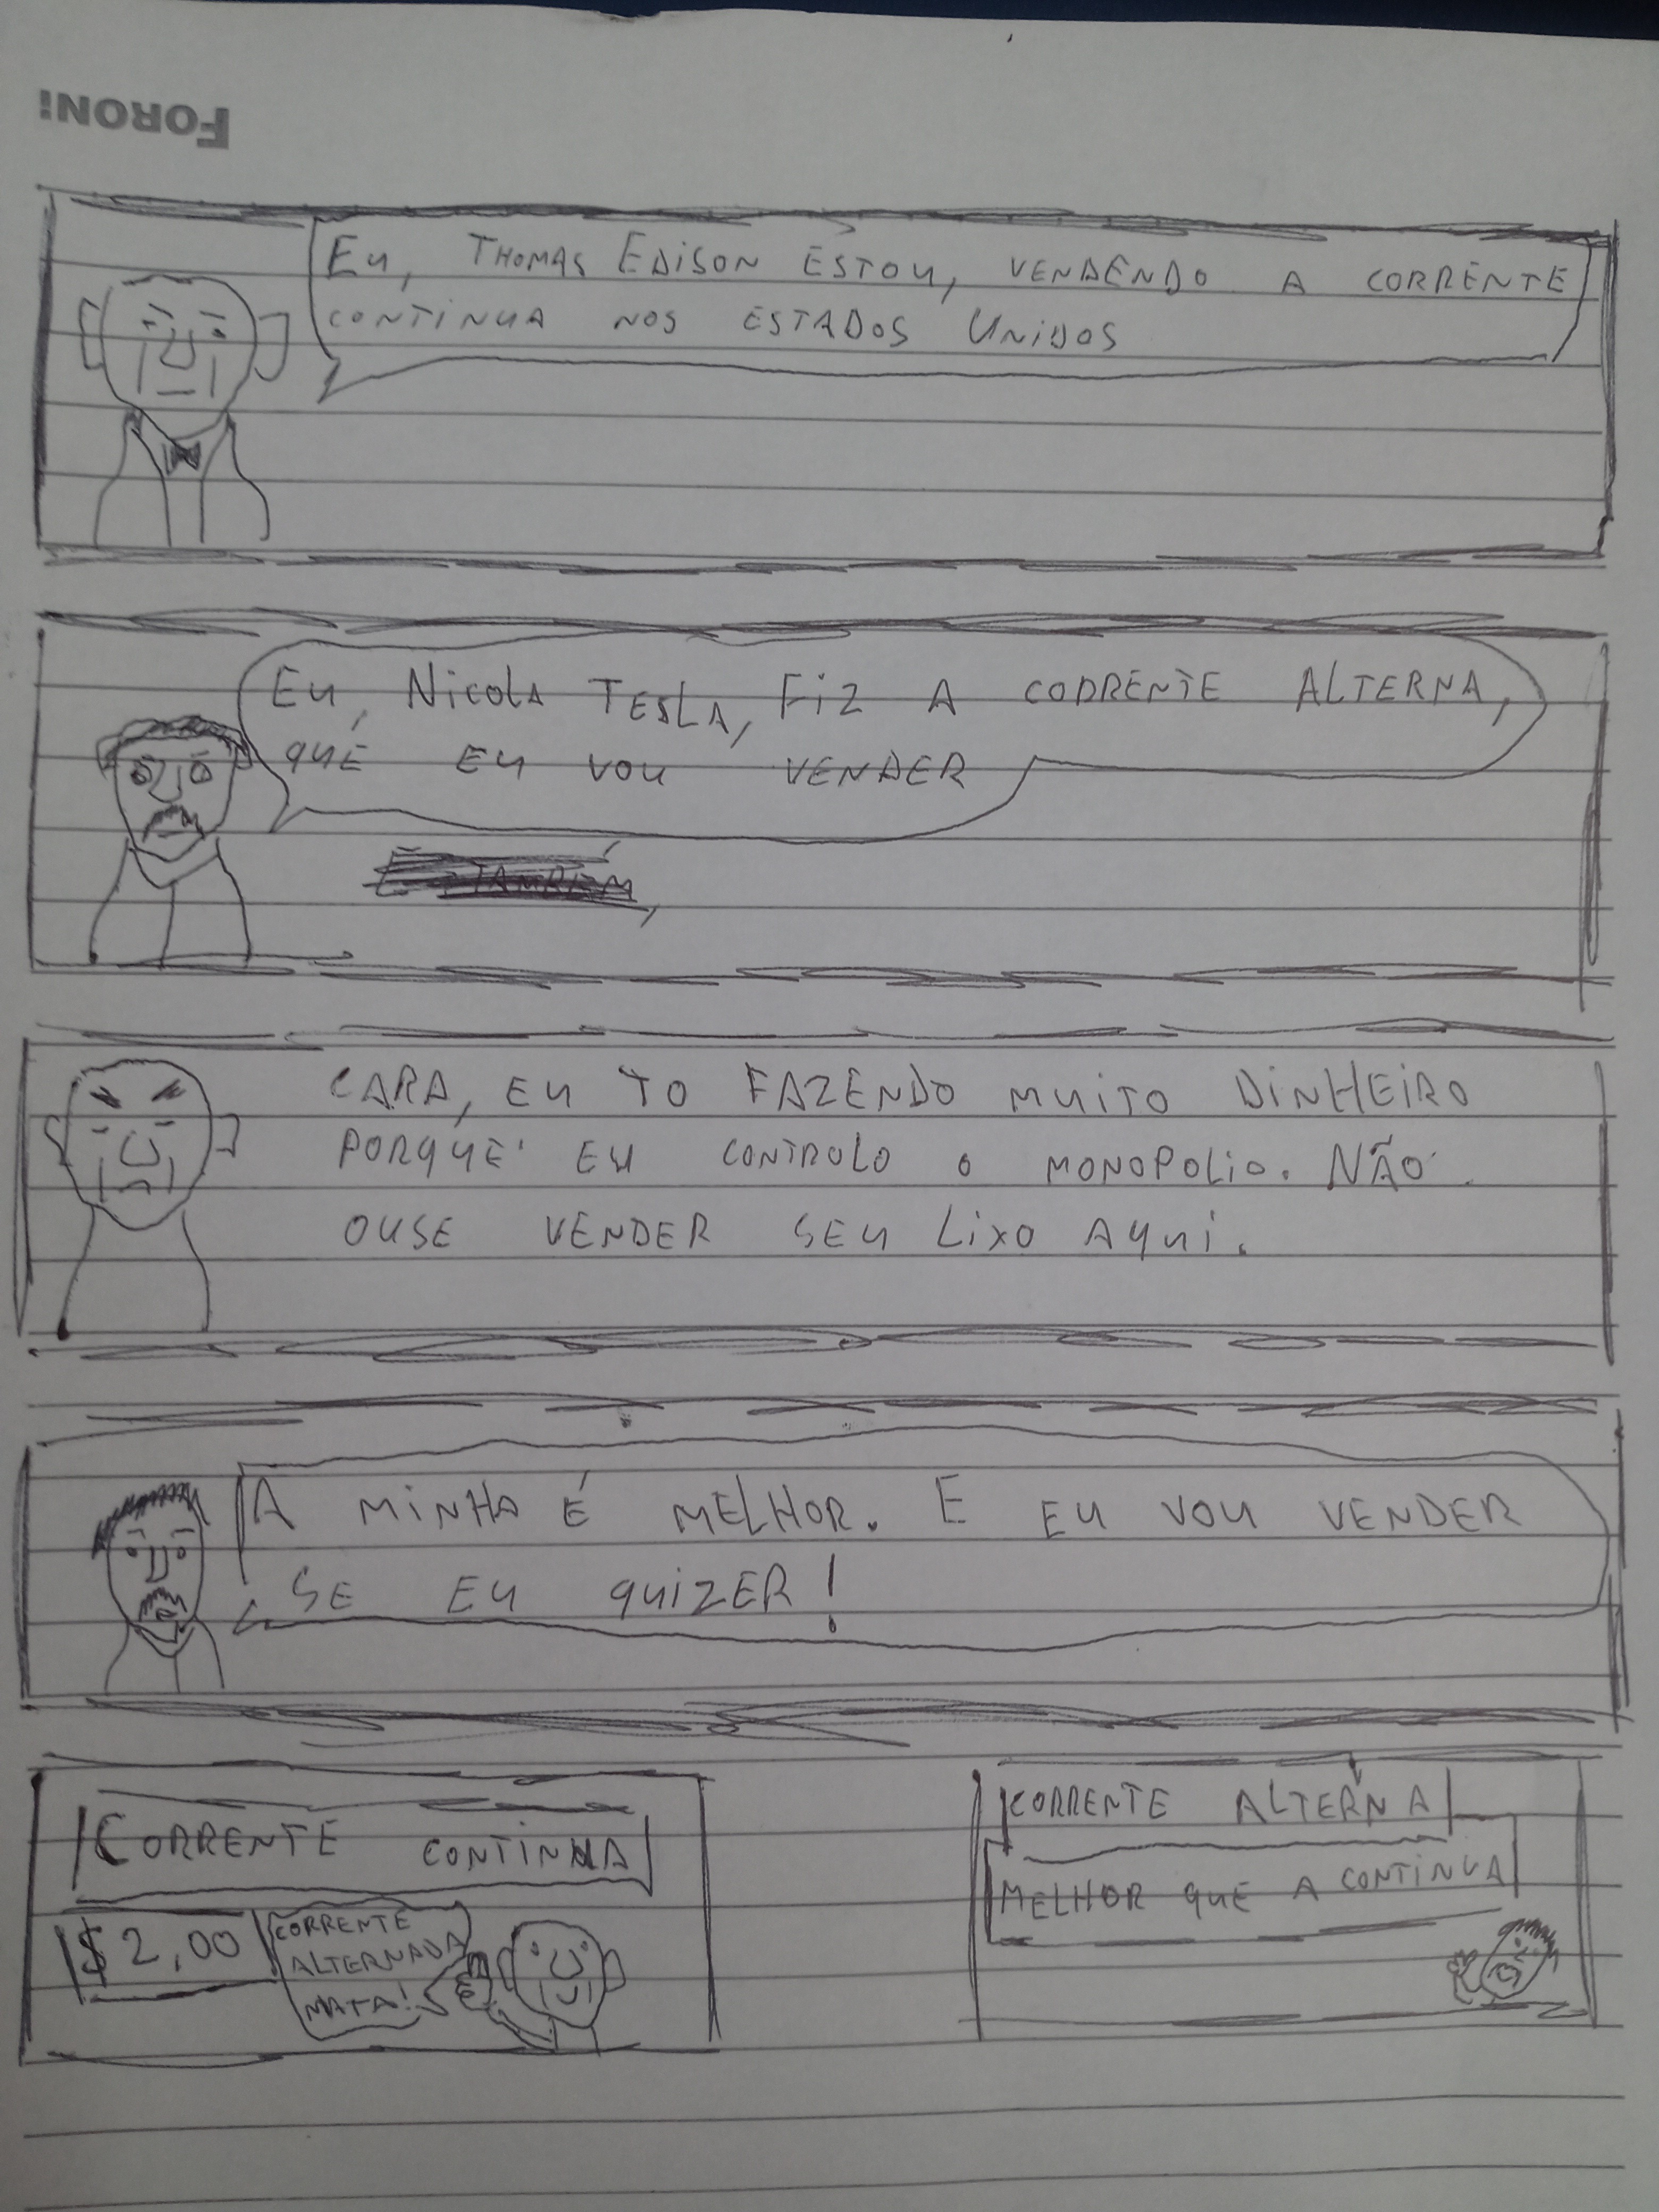 FORONI
EU, THOMAS EDISON ESTOU, VENDENDO A CORRENTE
CONTINUA NOS ESTADOS UNIDOS
EU, NICOLA TESLA, FIZ A CORRENTE ALTERNA,
QUE EU VOU VENDER
TAMBÉM,
CARA, EU TO FAZENDO MUITO DINHEIRO
PORQUE EU CONTROLO O MONOPOLIO. NÃO
OUSE VENDER SEU LIXO AQUI.
A MINHA É MELHOR. E EU VOU VENDER
SE EU QUIZER!
CORRENTE CONTINUA
$2,00
CORRENTE
ALTERNADA
MATA!
CORRENTE ALTERNA
MELHOR QUE A CONTINUA